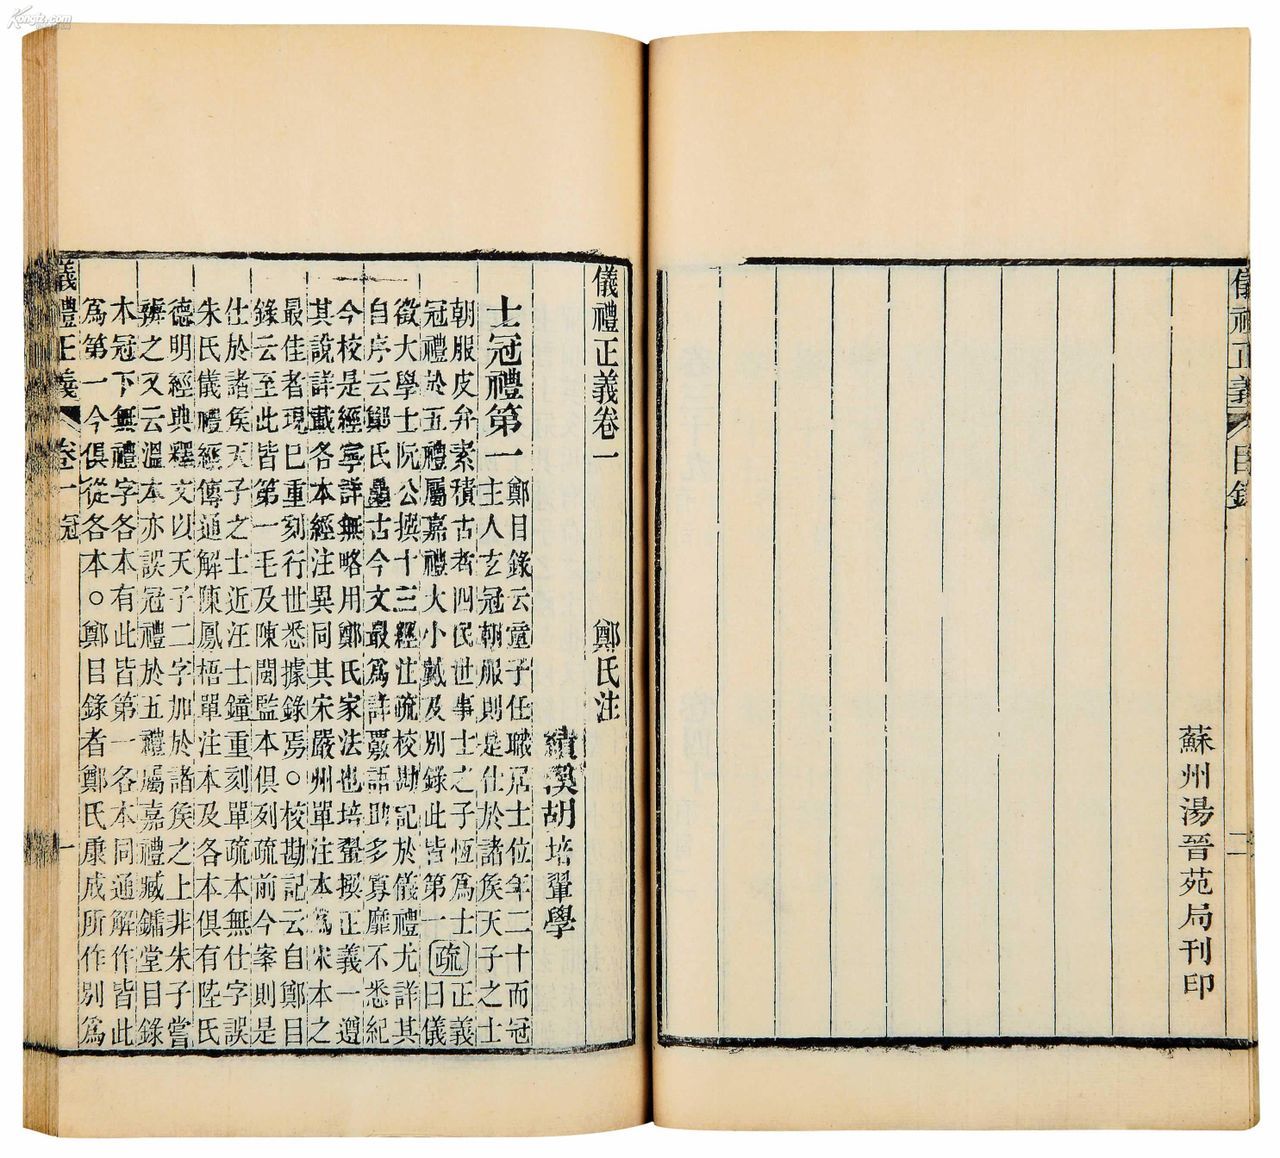 Kongfz.com
儀禮正義 目錄 二
蘇州湯晉苑局刊印
儀禮正義卷一 鄭氏注
績溪胡培翬學
士冠禮第一
鄭目錄云童子任職居士位年二十而冠
主人玄冠朝服則是仕於諸侯天子之士
朝服皮弁素積古者四民世事士之子恆爲士
冠禮於五禮屬嘉禮大小戴及別錄此皆第一
疏
正義
曰儀
徵大學士阮公撰十三經注疏校勘記於儀禮尤詳其
自序云鄭氏疊古今文最爲詳覈語助多寡靡不悉紀
今校是經寧詳無略用鄭氏家法也培翬撰正義一遵
其說詳載各本經注異同其宋嚴州單注本爲宋本之
最佳者現已重刻行世悉據錄焉○校勘記云自鄭目
錄云至此皆第一毛及陳閩監本俱列疏前今案則是
仕於諸侯天子之士近汪士鐘重刻單疏本無仕字誤
朱氏儀禮經傳通解陳鳳梧單注本及各本俱有陸氏
德明經典釋文以天子二字加於諸侯之上非朱子嘗
辨之又云溫本亦誤冠禮於五禮屬嘉禮臧鏞堂目錄
本冠下無禮字各本有此皆第一各本同通解作皆此
爲第一今俱從各本○鄭目錄者鄭氏康成所作別爲
儀禮正義 卷一 冠 一